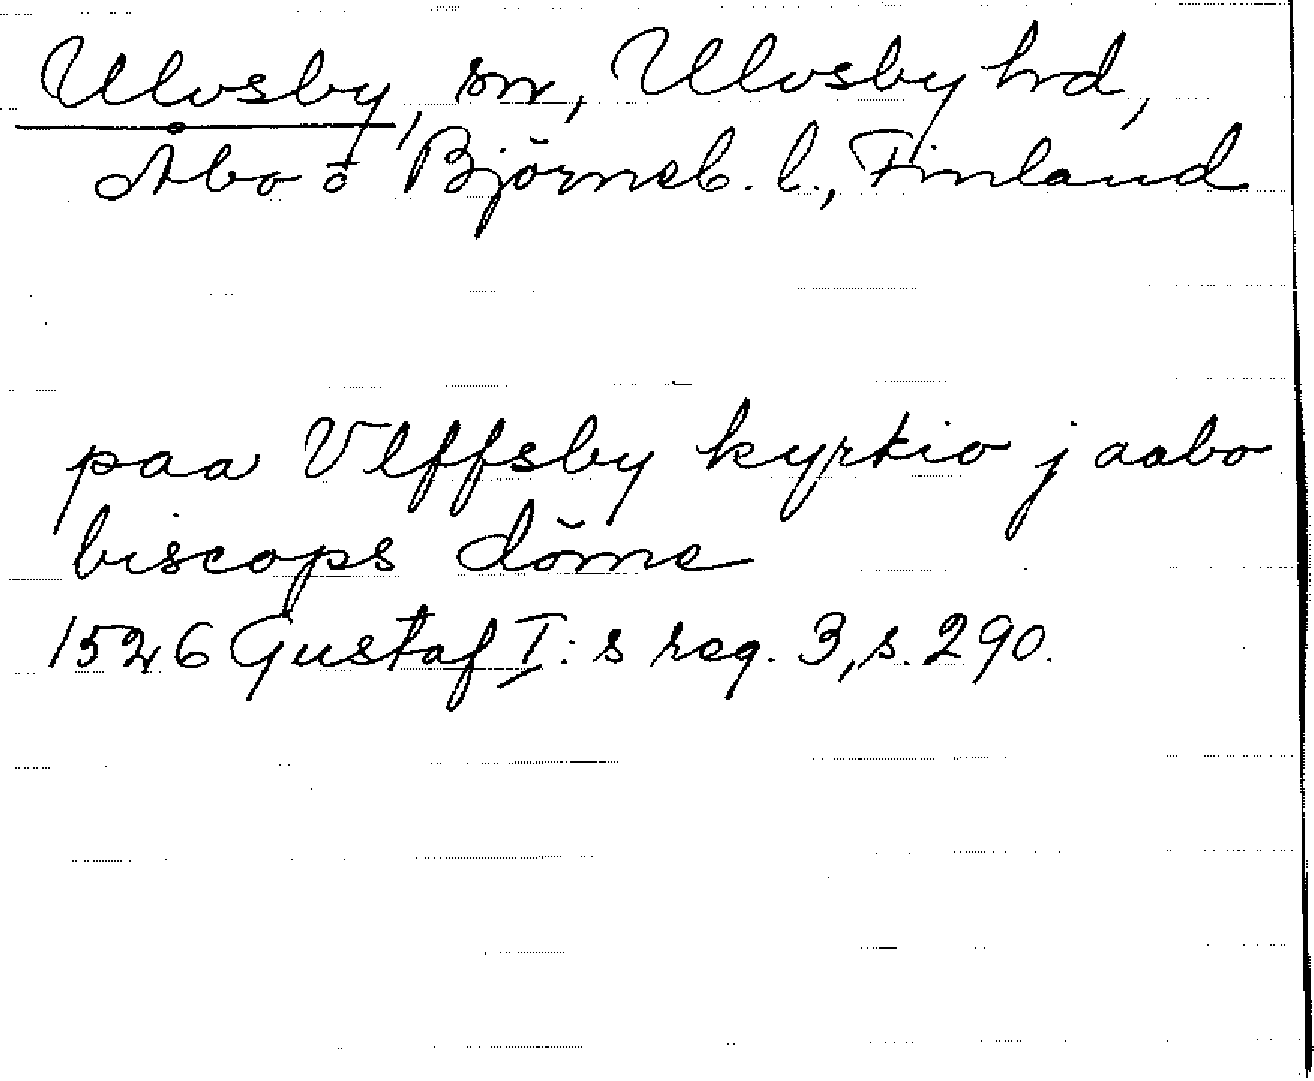 Ulvsby, sn, Ulvsby hrd,
Åbo o Björneb. l., Finland
paa Vlffsby kyrkio j aabo
biscops döme
1526 Gustaf I:s reg. 3, s. 290.